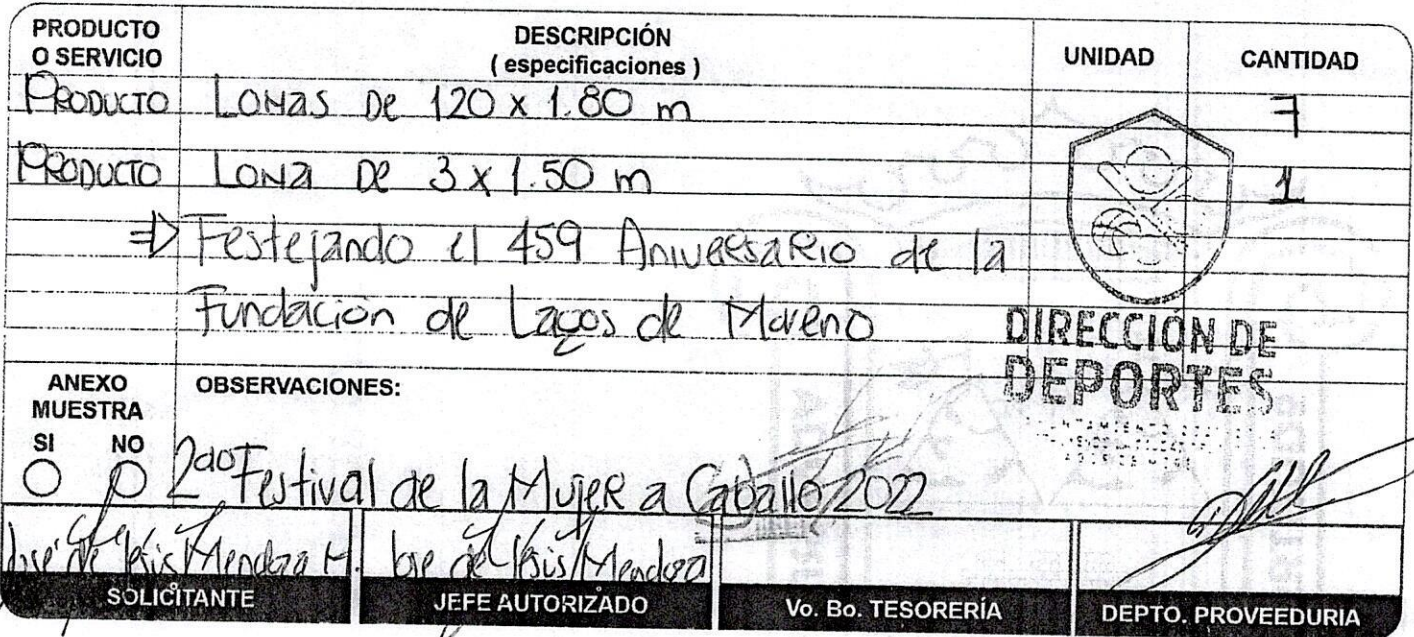 PRODUCTO O SERVICIO
DESCRIPCIÓN
( especificaciones )
UNIDAD
CANTIDAD
PRODUCTO LONAS DE 120 x 1.80 m 7
PRODUCTO LONA DE 3 x 1.50 m 1
⇒ Festejando el 459 Aniversario de la
Fundación de Lagos de Moreno
DIRECCIÓN DE
DEPORTES
ANEXO MUESTRA
SI NO
OBSERVACIONES:
2do Festival de la Mujer a Caballo 2022
José de Jesús Mendoza M.
José de Jesús Mendoza
SOLICITANTE
JEFE AUTORIZADO
Vo. Bo. TESORERÍA
DEPTO. PROVEEDURIA